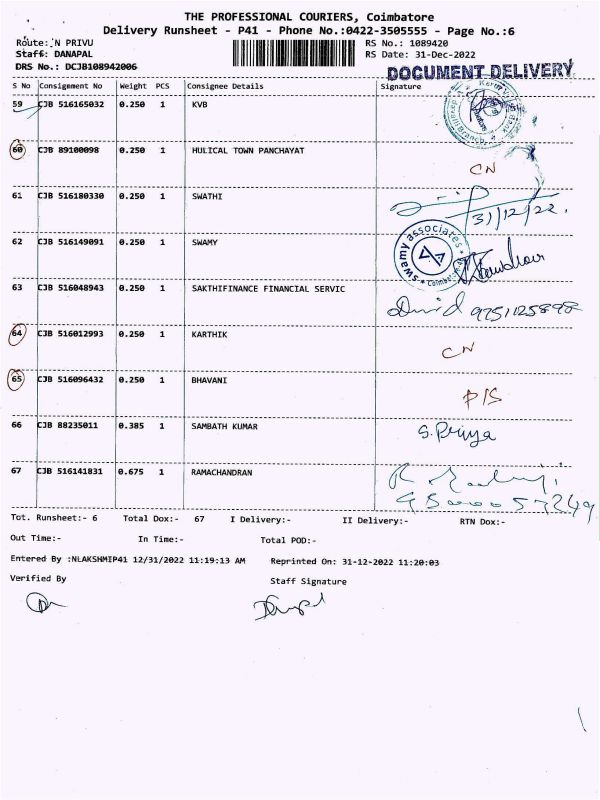 THE PROFESSIONAL COURIERS, Coimbatore
Delivery Runsheet - P41 - Phone No.:0422-3505555 - Page No.:6
Route: N PRIVU RS No.: 1089420
Staff: DANAPAL RS Date: 31-Dec-2022
DRS No.: DCJB108942006 DOCUMENT DELIVERY
S No Consignment No Weight PCS Consignee Details Signature
59 CJB 516165032 0.250 1 KVB
60 CJB 89100098 0.250 1 HULICAL TOWN PANCHAYAT CN
61 CJB 516180330 0.250 1 SWATHI 31/12/22.
62 CJB 516149091 0.250 1 SWAMY swamy associates Coimbatore
63 CJB 516048943 0.250 1 SAKTHIFINANCE FINANCIAL SERVIC 9751125898
64 CJB 516012993 0.250 1 KARTHIK CN
65 CJB 516096432 0.250 1 BHAVANI P/S
66 CJB 88235011 0.385 1 SAMBATH KUMAR S. Priya
67 CJB 516141831 0.675 1 RAMACHANDRAN
Tot. Runsheet:- 6 Total Dox:- 67 I Delivery:- II Delivery:- RTN Dox:-
Out Time:- In Time:- Total POD:-
Entered By :NLAKSHMIP41 12/31/2022 11:19:13 AM Reprinted On: 31-12-2022 11:20:03
Verified By Staff Signature